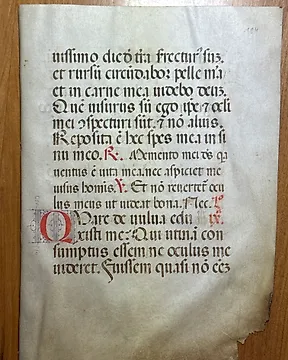 uissimo die d̄ t̄ra ſrectur̉ suz.
et rursū circūdabor pelle m̄a
et in carne mea uidebo deuz.
Quē uisurus sū ego ip̄e ⁊ oc̄li
mei ɔspecturi sūt. ⁊ nō alius.
Reposita ē hec spes mea in si
nu meo. R̃. Memento mei dꝰs qa
uentus ē uita mea. nec aspiciet me
uisus homīs. V̉. Et nō reuertet̄ ocu
lus meus ut uideat bona. Nec. L̄
Quare de uulua edu ix̄.
xisti me: Qui utinā con
sumptus essem ne oculus me
uideret. Fuissem quasi nō eēz
194